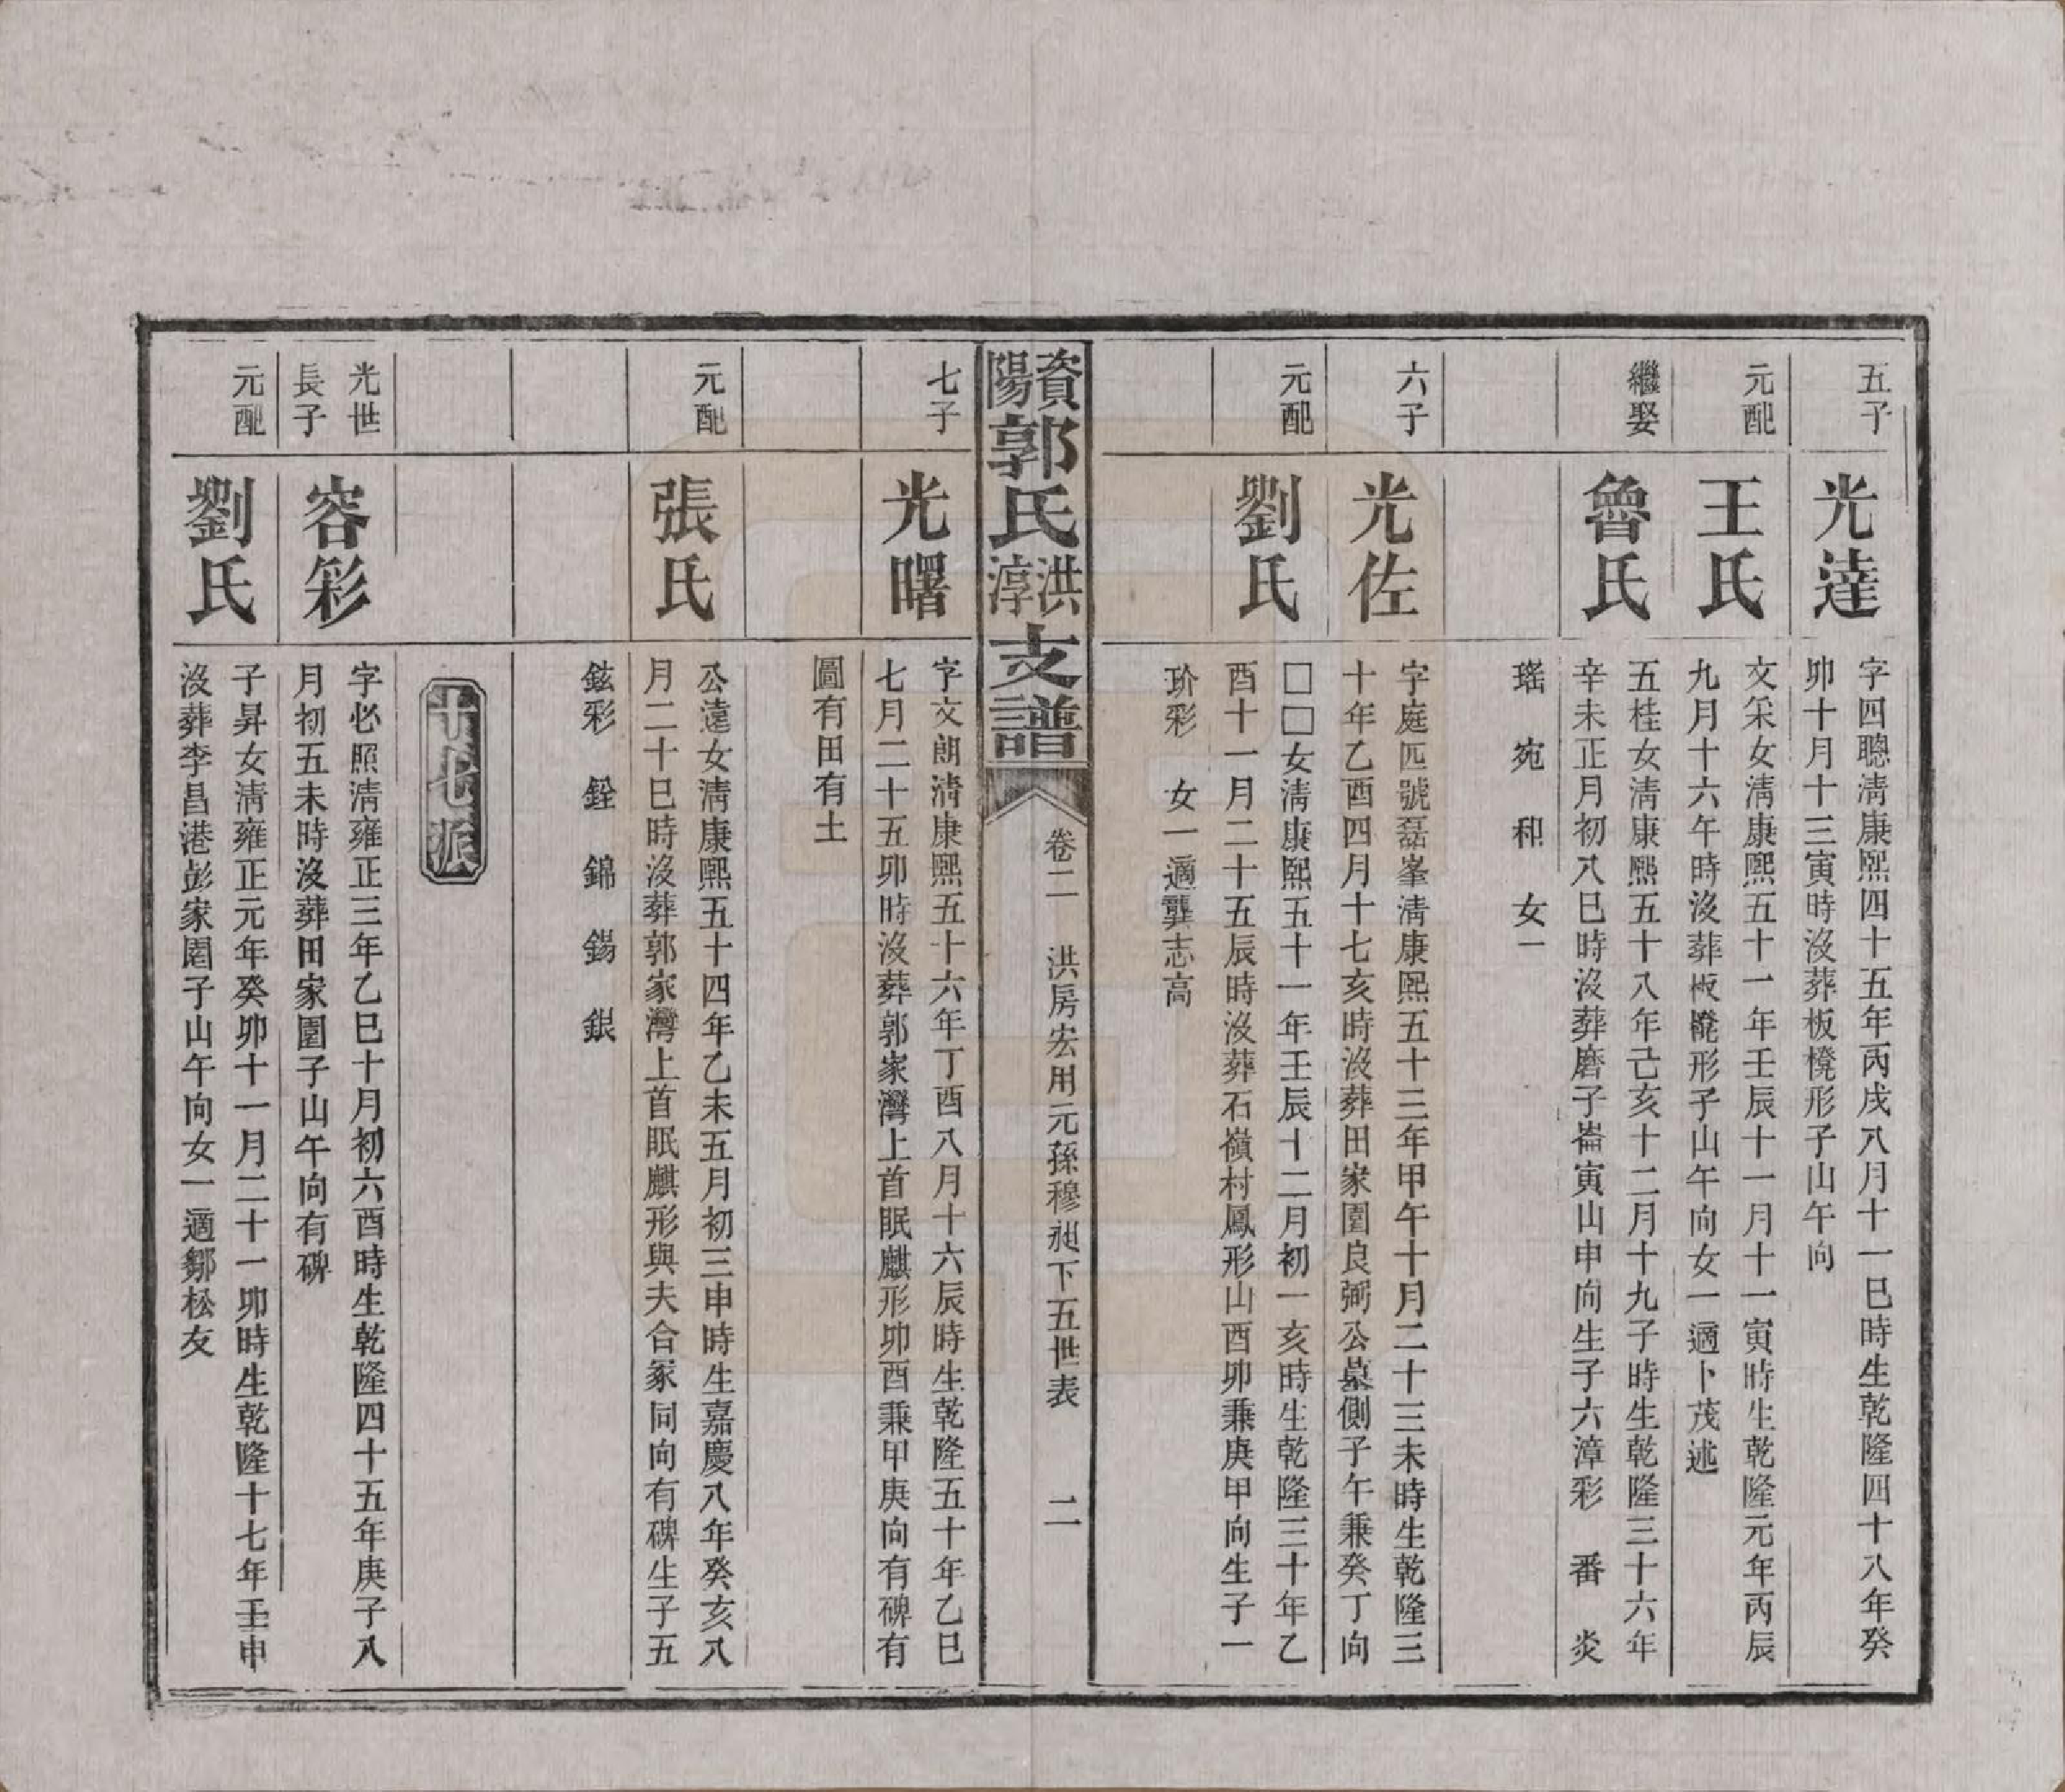 五子
光達
字四聰淸康熙四十五年丙戌八月十一巳時生乾隆四十八年癸
卯十月十三寅時沒葬板櫈形子山午向
元配
王氏
文采女淸康熙五十一年壬辰十一月十一寅時生乾隆元年丙辰
九月十六午時沒葬板櫈形子山午向女一適卜茂述
繼娶
魯氏
五桂女淸康熙五十八年己亥十二月十九子時生乾隆三十六年
辛未正月初八巳時沒葬磨子崙寅山申向生子六漳彩 番 炎
瑤 宛 和 女一
六子
光佐
字庭匹號磊峯淸康熙五十三年甲午十月二十三未時生乾隆三
十年乙酉四月十七亥時沒葬田家園良弼公墓側子午兼癸丁向
元配
劉氏
□□女淸康熙五十一年壬辰十二月初一亥時生乾隆三十年乙
酉十一月二十五辰時沒葬石嶺村鳳形山酉卯兼庚甲向生子一
玠彩 女一適龔志高
資陽郭氏洪淳支譜
卷二 洪房宏用元孫穆昶下五世表 二
七子
光曙
字文朗淸康熙五十六年丁酉八月十六辰時生乾隆五十年乙巳
七月二十五卯時沒葬郭家灣上首眠麒形卯酉兼甲庚向有碑有
圖有田有土
元配
張氏
公達女淸康熙五十四年乙未五月初三申時生嘉慶八年癸亥八
月二十巳時沒葬郭家灣上首眠麒形與夫合冢同向有碑生子五
鉉彩 銓 錦 錫 銀
十七派
光世
長子
容彩
字必照淸雍正三年乙巳十月初六酉時生乾隆四十五年庚子八
月初五未時沒葬田家園子山午向有碑
元配
劉氏
子昇女淸雍正元年癸卯十一月二十一卯時生乾隆十七年壬申
沒葬李昌港彭家園子山午向女一適鄒松友